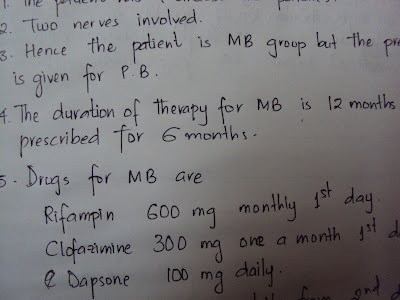 1. The
2. Two nerves involved.
3. Hence the patient is MB group but the pre
is given for P.B.
4. The duration of therapy for MB is 12 months
prescribed for 6 months.
5. Drugs for MB are
Rifampin 600 mg monthly 1st day.
Clofazimine 300 mg one a month 1st d
& Dapsone 100 mg daily.